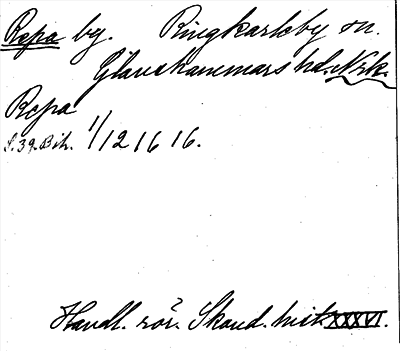 Repa by. Ringkarleby sn.
Glanshammars hd. Nrk.
Repa
S. 39. Bih. 1/12 1616.
Handl. rör. Skand. hist. XXXVI.